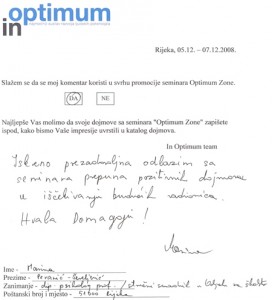 in optimum
Rijeka, 05.12. – 07.12.2008.
Slažem se da se moj komentar koristi u svrhu promocije seminara Optimum Zone.
DA NE
Najljepše Vas molimo da svoje dojmove sa seminara "Optimum Zone" zapišete
ispod, kako bismo Vaše impresije uvrstili u katalog dojmova.
In Optimum team
Iskreno prezadovoljna odlazim sa
seminara prepuna pozitivnih dojmova
u iščekivanju budućih radionica.
Hvala Domagoju!
Marina
Ime - Marina
Prezime -
Zanimanje - dip. psiholog prof. / stručni suradnik -
Poštanski broj i mjesto - 51000 Rijeka